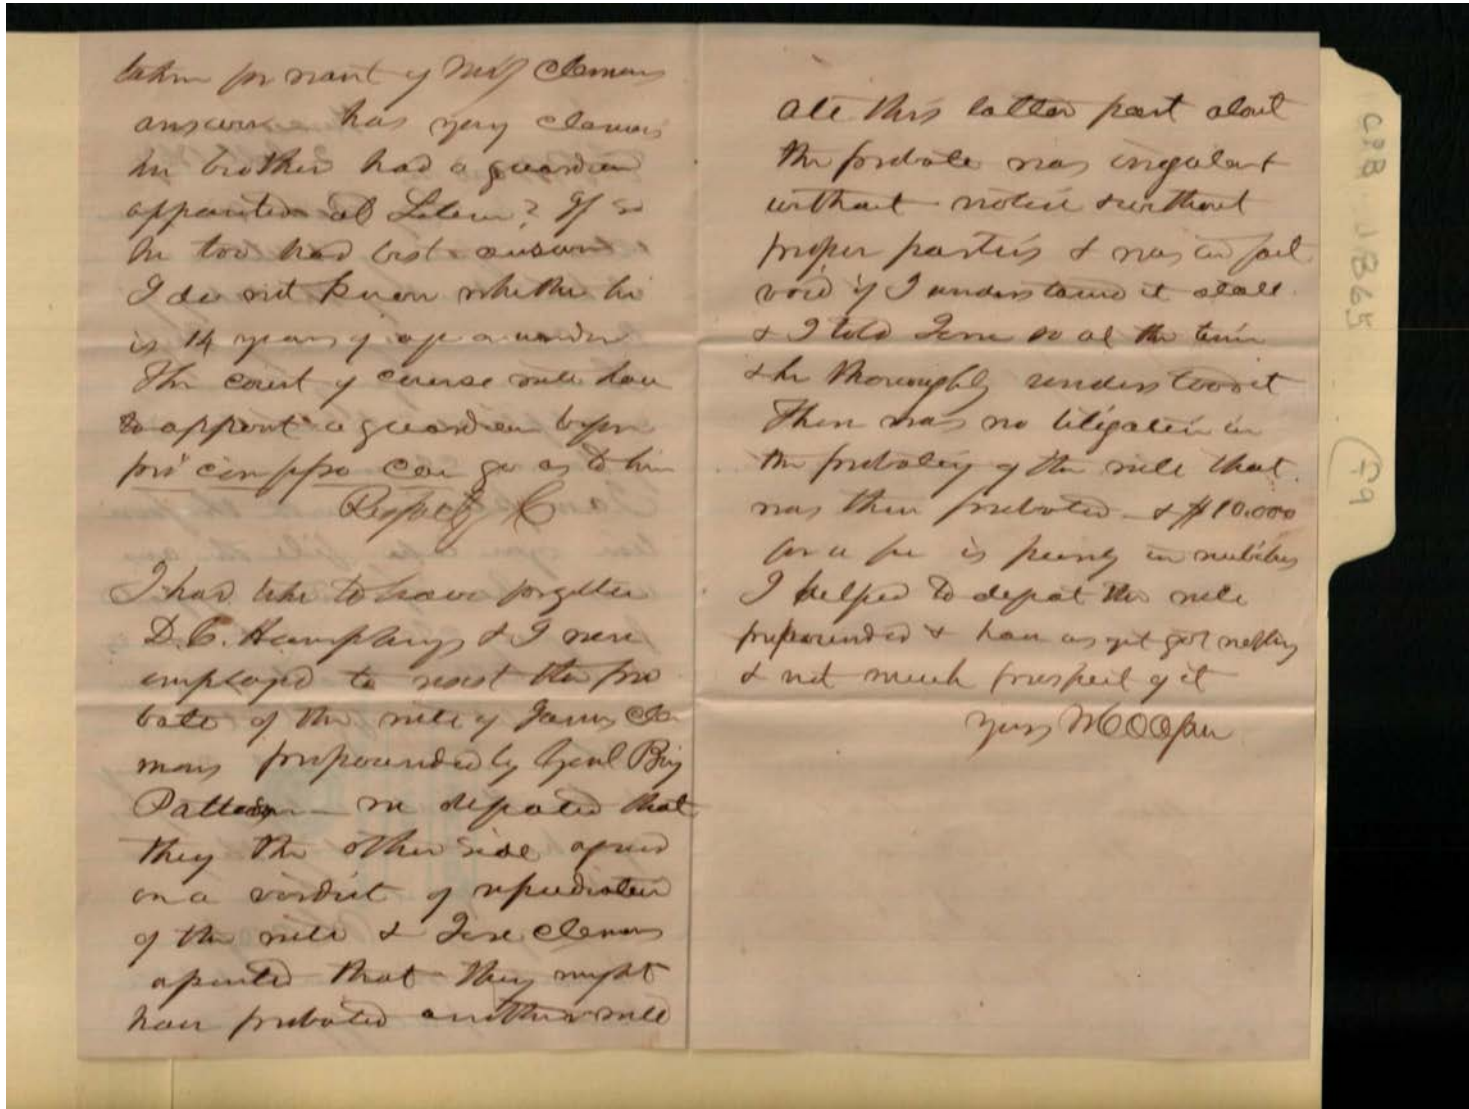 taken for want of Miss Clemens
answer has very Clemens
her brother had a guardian
appointed at Selma? If so
he too had best answer
I do not know whether he
is 14 years of age or under
The court of course will have
to appoint a guardian before
pro confesso can go as to him
Respectfy C
I had like to have forgotten
D.C. Humphreys & I were
employed to resist the pro
bate of the will of James Cle
mens propounded by Genl Ben
Patteson – we defeated that
they the other side agreed
on a verdict of repudiation
of the will & Jere Clemens
agreed that they might
have probated another will
All this latter part about
the probate was irregular &
without notice & without
proper parties & was in fact
void if I understand it at all
& I told Jere so at the time
& he thoroughly understood it
There was no litigation in
the probating of the will that
was then probated – & $10.000
for a fee is purely in nubibus
I helped to defeat the will
propounded & have as yet got nothing
& not much prospect of it
Yours
CPB 1865
(-9